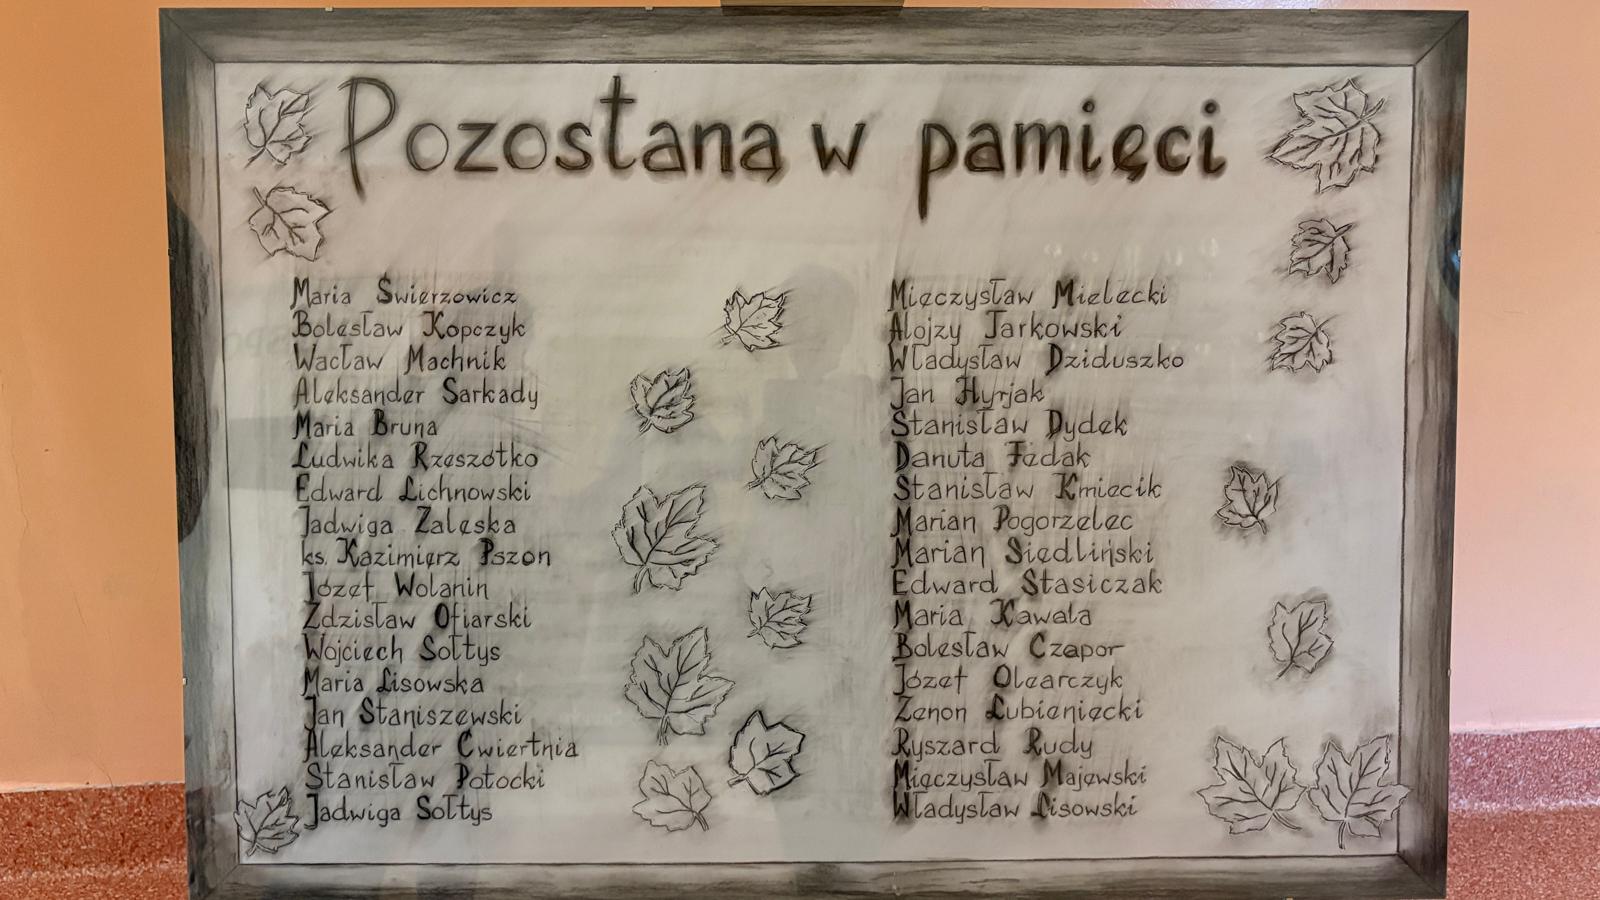 Pozostaną w pamięci
Maria Swierzowicz
Bolesław Kopczyk
Wacław Machnik
Aleksander Sarkady
Maria Bruna
Ludwika Rzeszótko
Edward Lichnowski
Jadwiga Zaleska
ks. Kazimierz Pszon
Józef Wolanin
Zdzisław Ofiarski
Wojciech Sołtys
Maria Lisowska
Jan Staniszewski
Aleksander Cwiertnia
Stanisław Potocki
Jadwiga Sołtys
Mieczysław Mielecki
Alojzy Jarkowski
Władysław Dziduszko
Jan Hyrjak
Stanisław Dydek
Danuta Fedak
Stanisław Kmiecik
Marian Pogorzelec
Marian Siedliński
Edward Stasiczak
Maria Kawala
Bolesław Czapor
Józef Olearczyk
Zenon Łubieniecki
Ryszard Rudy
Mieczysław Majewski
Władysław Lisowski